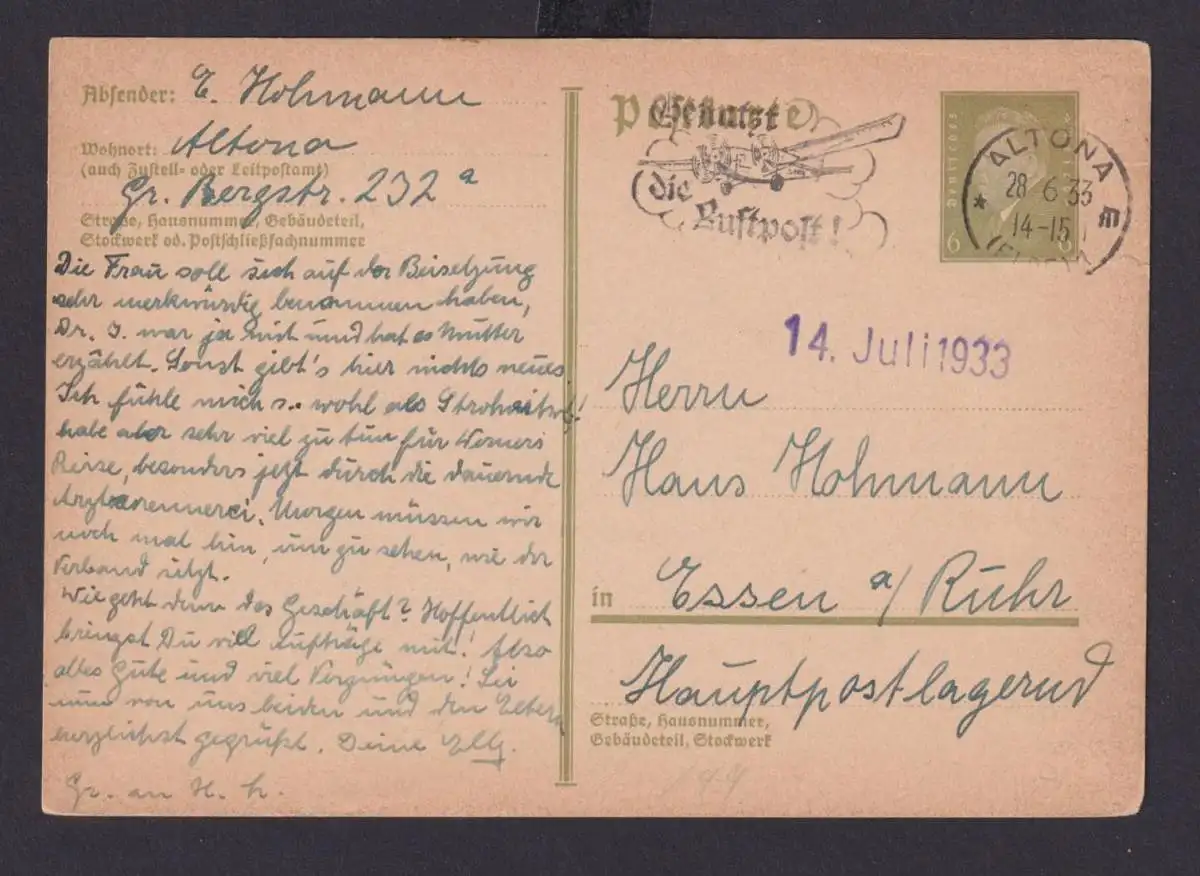 Absender: E. Hohmann
Wohnort: Altona
(auch Zustell- oder Leitpostamt)
Gr. Bergstr. 232a
Straße, Hausnummer, Gebäudeteil,
Stockwerk od. Postschließfachnummer
Die Frau soll sich auf der Beisetzung
sehr merkwürdig benommen haben,
Dr. J. war ja mit und hat es Mutter
erzählt. Sonst gibt's hier nichts neues
Ich fühle mich s. wohl als
habe aber sehr viel zu tun für Werners
Reise, besonders jetzt durch die dauernde
Arztrennerei. Morgen müssen wir
noch mal hin, um zu sehen, wie der
Verband sitzt.
Wie geht denn das Geschäft? Hoffentlich
bringst Du viel Aufträge mit! Also
alles Gute und viel Vergnügen! Sei
nun von uns beiden und den Eltern
herzlichst gegrüßt. Deine Elly.
Gr. an H. h.
Postkarte
Benutzt
die
Luftpost!
Deutsches
6
6
ALTONA
28 6.33
14-15
E
(ELBE) 1
14. Juli 1933
Herrn
Hans Hohmann
in Essen a/Ruhr
Hauptpostlagernd
Straße, Hausnummer,
Gebäudeteil, Stockwerk